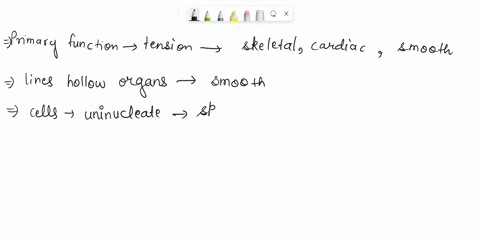 ⇒ Primary function → tension → skeletal, cardiac, smooth
⇒ lines hollow organs → smooth
⇒ cells → uninucleate → sp